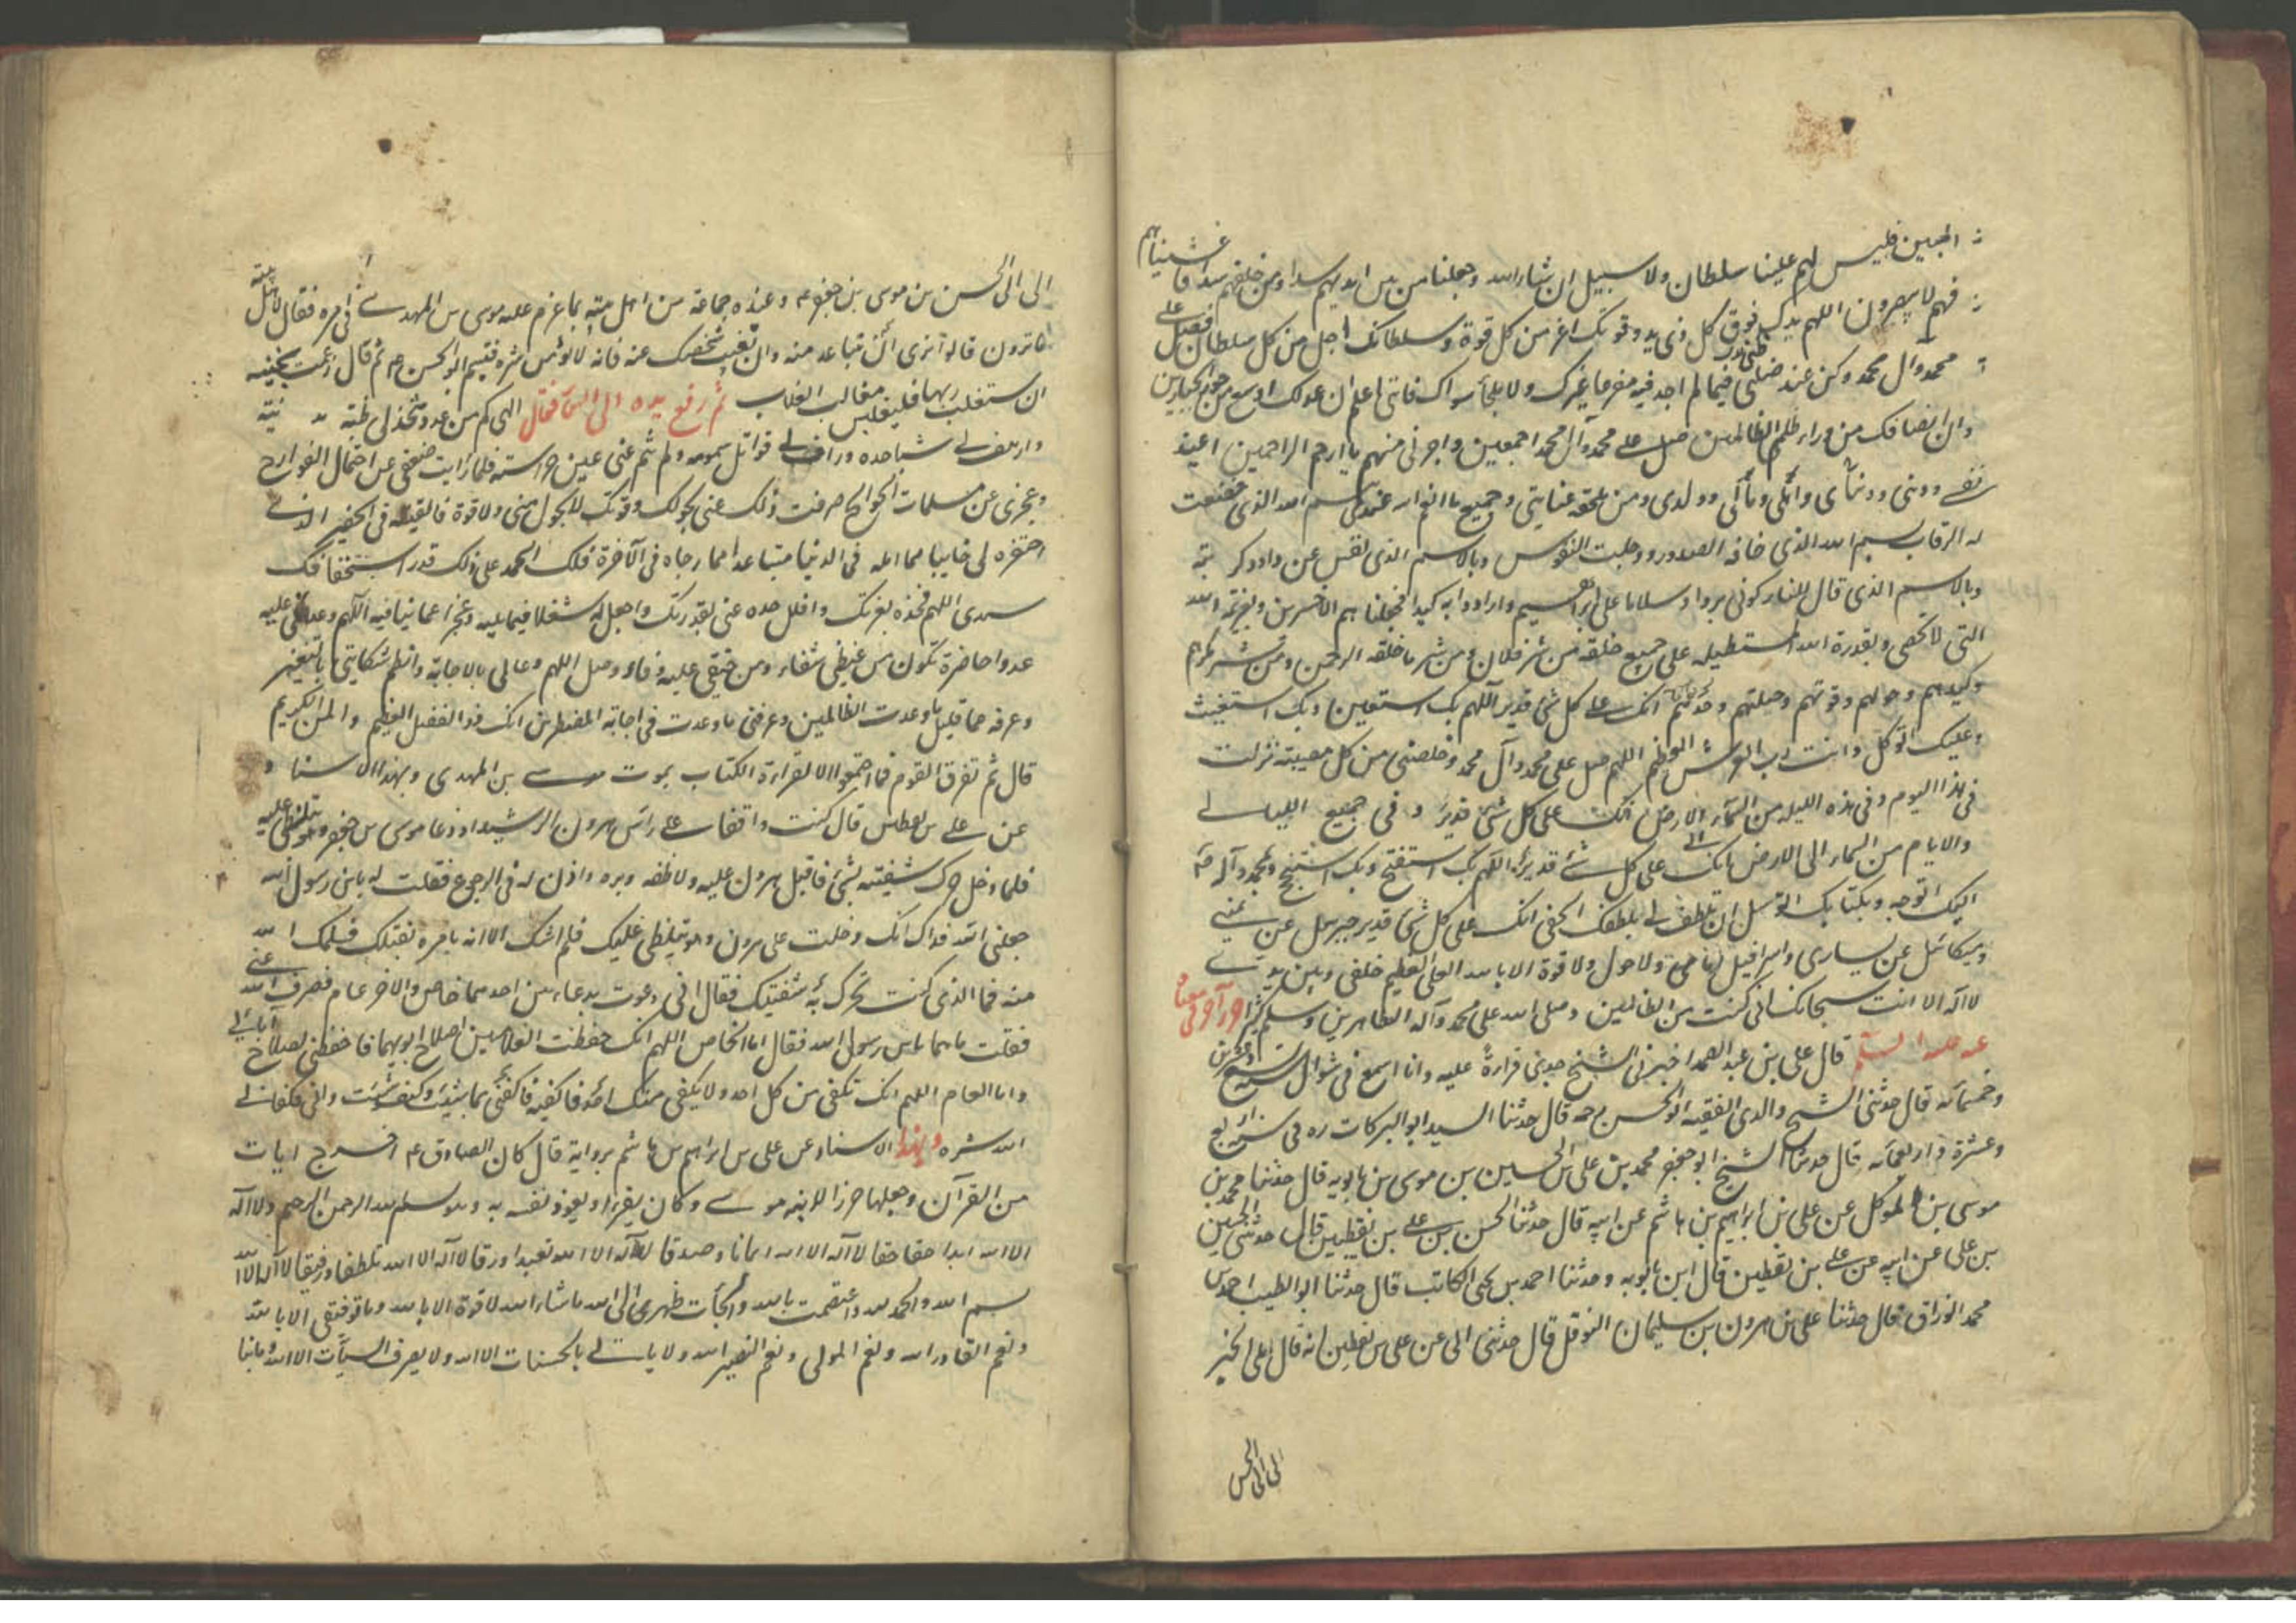 المبين فليس لهم علينا سلطان ولا سبيل ان شاء الله وجعلنا من بين ايديهم سدا ومن خلفهم سدا فاغشيناهم
فهم لا يبصرون اللهم يدك فوق كل ذي يد وقوتك اعز من كل قوة وسلطانك اجل من كل سلطان فصل على
محمد وال محمد وكن عند ظني فيما لم اجد فيه مفزعا غيرك ولا ملجأ سواك فانني اعلم ان عدلك اوسع من جور الجبارين
وان انصافك من وراء ظلم الظالمين صل على محمد وآل محمد اجمعين واجرني منهم يا ارحم الراحمين اعيذ
نفسي وديني واهلي ومالي وولدي ومن يلحقه عنايتي وجميع ما انعم الله عندي بسم الله الذي خضعت
له الرقاب بسم الله الذي خافه الصدور ووجلت النفوس وبالاسم الذي نفس عن داود كربته
وبالاسم الذي قال للنار كوني بردا وسلاما على ابراهيم وارادوا به كيدا فجعلناهم الاخسرين وبعزيمة الله
التي لا تحصى وبقدرة الله المستطيله على جميع خلقه من شر فلان ومن شر ما خلقه الرحمن ومن شر مكرهم
وكيدهم وحولهم وقوتهم وحيلتهم انك على كل شئ قدير اللهم بك استعين وبك استغيث
وعليك اتوكل وانت رب العرش العظيم اللهم صل على محمد وآل محمد وخلصني من كل مصيبة نزلت
في هذا اليوم وفي هذه الليله من السمآء الى الارض انك على كل شئ قدير وفي جميع الليالي
والايام من السماء الى الارض انك على كل شئ قدير اللهم بك استفتح وبك استنجح وبمحمد وآله
اليك اتوجه وبكتابك اتوسل ان تلطف لي بلطفك الخفي انك على كل شئ قدير جبرئيل عن يميني
وميكائيل عن يساري واسرافيل امامي ولا حول ولا قوة الا بالله العلي العظيم خلفي وبين يدي
لا اله الا انت سبحانك اني كنت من الظالمين وصلى الله على محمد وآله الطاهرين وسلم كثيرا
عنه عليه السلم قال علي بن عبد الصمد اخبرني الشيخ جدي قراءة عليه وانا اسمع في شوال سنة تسع وعشرين
وخمسمائه قال حدثني الشيخ والدي الفقيه ابو الحسن رحمه قال حدثنا السيد ابو البركات ره في سنة اربع
وعشرة واربعمائه قال حدثنا الشيخ ابو جعفر محمد بن علي بن الحسين بن موسى بن بابويه قال حدثنا محمد بن
موسى بن المتوكل عن علي بن ابراهيم بن هاشم عن ابيه قال حدثنا الحسن بن علي بن يقطين قال حدثني الحسين
بن علي عن ابيه عن علي بن يقطين قال ابن بابويه وحدثنا احمد بن يحيى الكاتب قال حدثنا ابو الطيب احمد بن
محمد الوراق قال حدثنا علي بن هرون بن سليمان النوفلي قال حدثني ابي عن علي بن يقطين انه قال انهي الخبر
الى ابي الحسن
الى ابي الحسن بن موسى بن جعفر ع وعنده جماعة من اهل بيته بما عزم عليه موسى بن المهدي في امره فقال لاهل بيته
ما ترون قالوا نرى ان تتباعد منه وان تغيب شخصك عنه فانه لا يؤمن شره فتبسم ابو الحسن ع ثم قال زعمت سخينه
ان ستغلب ربها فليغلبن مغالب الغلاب ثم رفع يده الى السماء فقال الهي كم من عدو شحذ لي ظبته
وارهف لي شباحده وداف لي قواتل سمومه ولم تنم عني عين حراسته فلما رايت ضعفي عن احتمال الفوادح
وعجزي عن مسلمات الجوائح صرفت ذلك عني بحولك وقوتك لا بحول مني ولا قوة فالقيته في الحفير الذي
احتفره لي خايبا مما امله في الدنيا متباعدا مما رجاه في الآخرة فلك الحمد على ذلك قدر استحقاقك
سيدي اللهم فخذه بعزتك وافلل حده عني بقدرتك واجعل له شغلا فيما يليه وعجزا عما يناويه اللهم وعدني عليه
عدوا حاضرة تكون من غيظي شفاء ومن حنقي عليه وفاء وصل اللهم دعائي بالاجابة وانظم شكايتي بالتغيير
وعرفه عما قليل ما وعدت الظالمين وعرفني ما وعدت في اجابة المضطرين انك ذو الفضل العظيم والمن الكريم
قال ثم تفرق القوم فما اجتمعوا الا لقراءة الكتاب بموت موسى بن المهدي وبهذا الاسناد
عن علي بن يقطين قال كنت واقفا على راس هرون الرشيد اذ دعا موسى بن جعفر وهو يتلظى عليه
فلما دخل حرك شفتيه بشئ فاقبل هرون عليه ولاطفه وبره واذن له في الرجوع فقلت له يا بن رسول الله
جعلني الله فداك انك دخلت على هرون وهو يتلظى عليك فلم اشك الا انه يامر بقتلك فسلمك الله
منه فما الذي كنت تحرك به شفتيك فقال اني دعوت بدعاءين احدهما خاص والاخر عام فصرف الله عني
فقلت ما هما يابن رسول الله فقال اما الخاص اللهم انك حفظت الغلامين لصلاح ابويهما فاحفظني لصلاح آبائي
واما العام اللهم انك تكفي من كل احد ولا يكفي منك احد فاكفنيه بما شئت وكيف شئت واني فكفاني
الله شره وبهذا الاسناد عن علي بن ابراهيم بن هاشم برواية قال كان الصادق ع اخرج ايات
من القرآن وجعلها حرزا لابنه موسى وكان يقرأ ويعوذ نفسه به وهو بسم الله الرحمن الرحيم ولا اله
الا الله ابدا حقا حقا لا اله الا الله ايمانا وصدقا لا اله الا الله تعبدا ورقا لا اله الا الله تلطفا ورفقا لا اله الا الله
بسم الله والحمد لله واعتصمت بالله والجأت ظهري الى الله ما شاء الله لا قوة الا بالله وما توفيقي الا بالله
ونعم القادر الله ونعم المولى ونعم النصير الله ولا ياتي بالحسنات الا الله ولا يصرف السيآت الا الله وما بنا